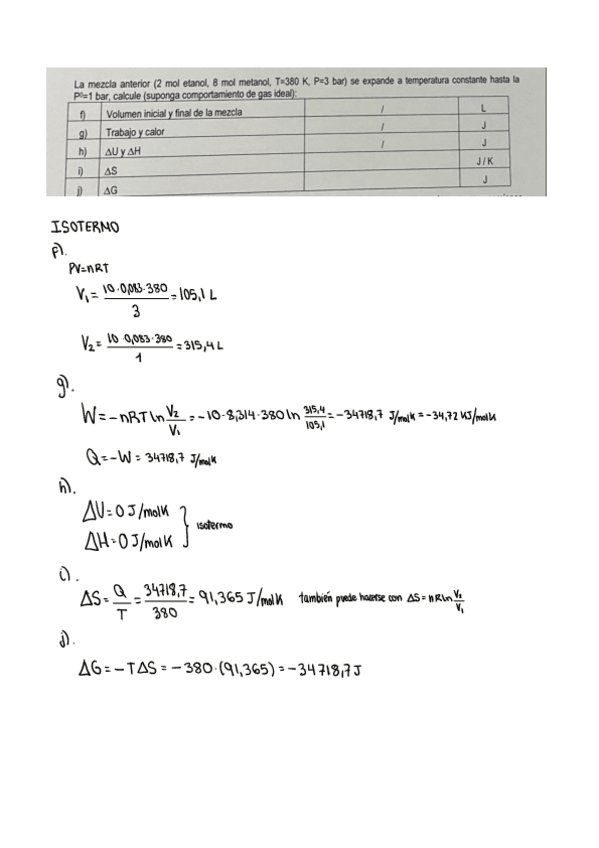 La mezcla anterior (2 mol etanol, 8 mol metanol, T=380 K, P=3 bar) se expande a temperatura constante hasta la
Pº=1 bar, calcule (suponga comportamiento de gas ideal):
f) Volumen inicial y final de la mezcla / L
g) Trabajo y calor / J
h) ΔU y ΔH / J
i) ΔS J / K
j) ΔG J
ISOTERMO
f).
PV=nRT
V₁ = 10·0,083·380 / 3 = 105,1 L
V₂ = 10·0,083·380 / 1 = 315,4 L
g).
W = -nRT ln V₂/V₁ = -10·8,314·380 ln 315,4/105,1 = -34718,7 J/molK = -34,72 KJ/molK
Q = -W = 34718,7 J/molK
h).
ΔU = 0 J/molK
ΔH = 0 J/molK } isotermo
i).
ΔS = Q/T = 34718,7/380 = 91,365 J/molK también puede hacerse con ΔS = nRLn V₂/V₁
j).
ΔG = -TΔS = -380·(91,365) = -34718,7 J